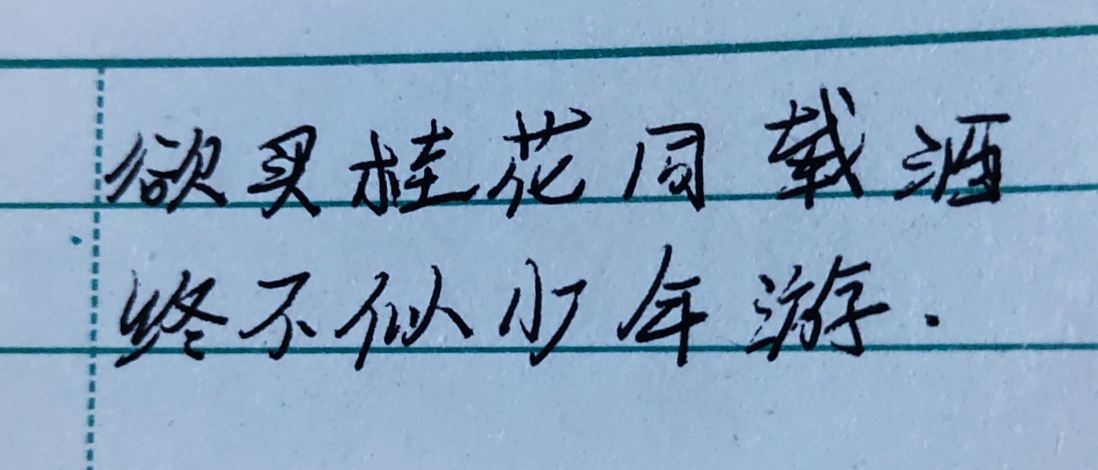 欲买桂花同载酒
终不似少年游.